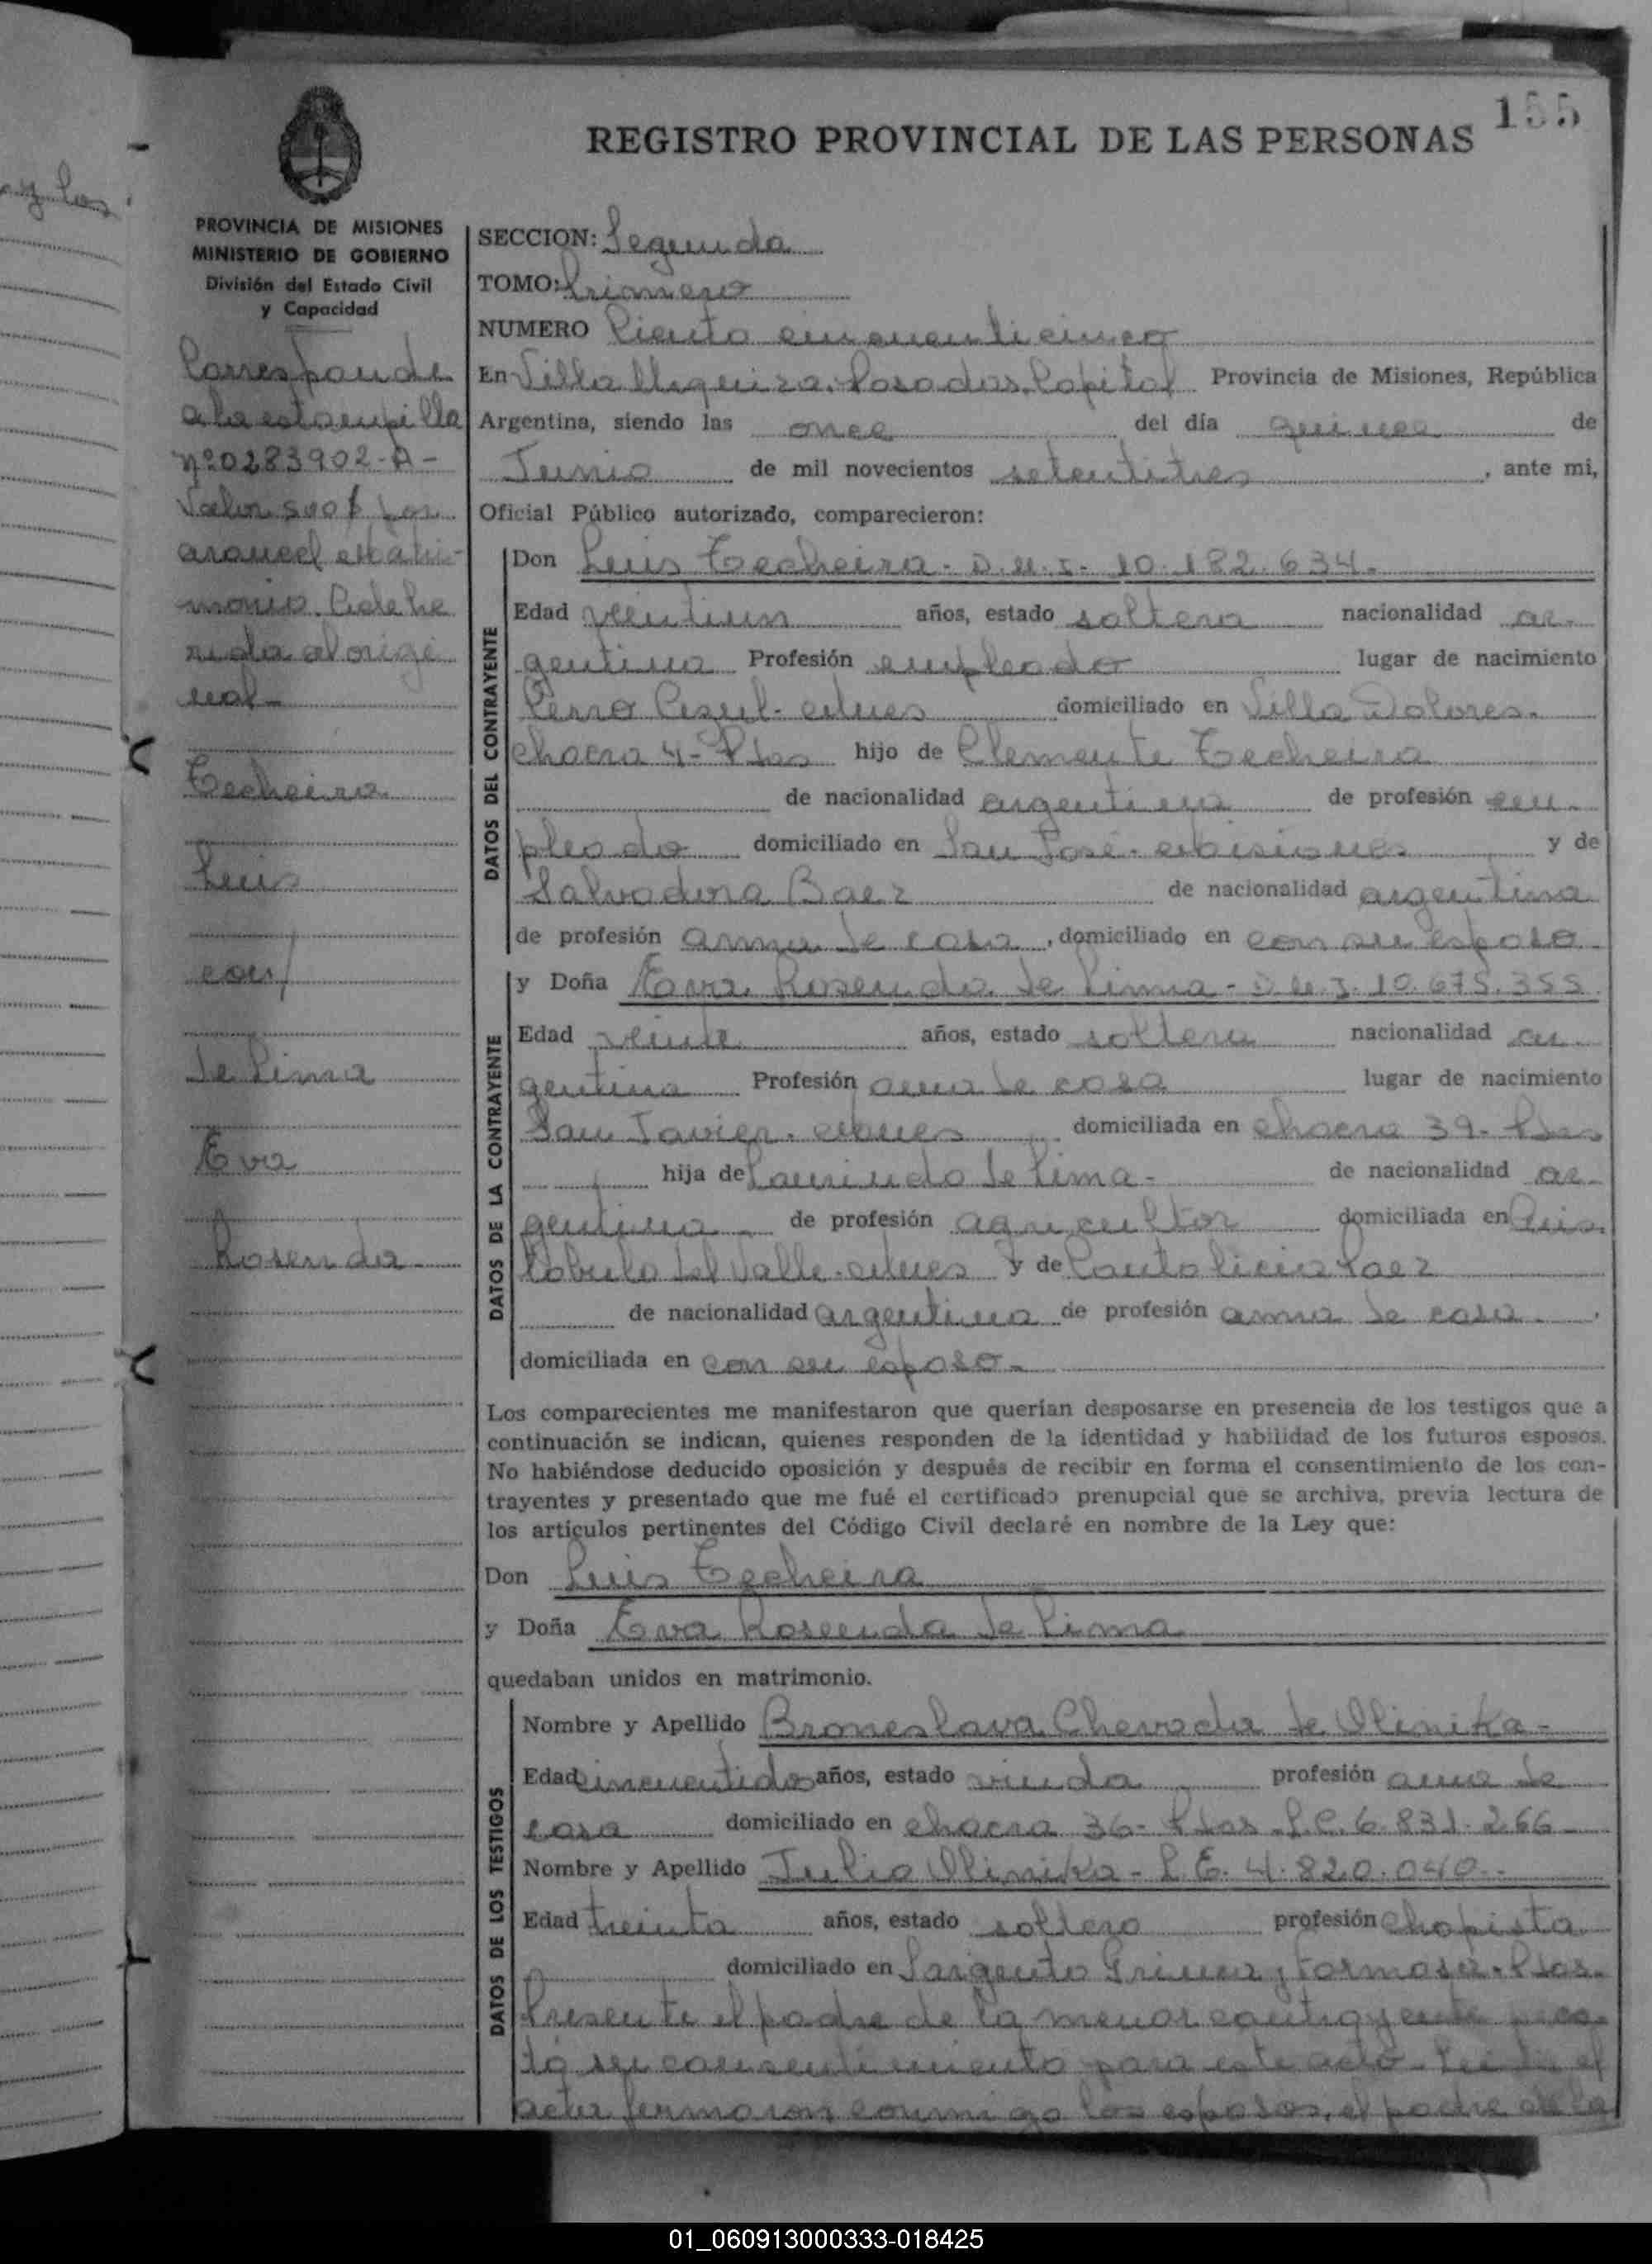 y los
155
REGISTRO PROVINCIAL DE LAS PERSONAS
PROVINCIA DE MISIONES
MINISTERIO DE GOBIERNO
División del Estado Civil
y Capacidad
Corresponde
a la estampilla
nº 0283902-A-
Valor 500$ por
arancel matri-
monio. Adhe
rida al origi
nal-
Techeira
Luis
con/
de Lima
Eva
Rosenda
SECCION: Segunda
TOMO: Primero
NUMERO Ciento cincuenticinco
En Villa Urquiza. Posadas. Capital Provincia de Misiones, República
Argentina, siendo las once del día quince de
Junio de mil novecientos setentitres, ante mi,
Oficial Público autorizado, comparecieron:
DATOS DEL CONTRAYENTE
Don Luis Techeira- D.N.I- 10.182.634.
Edad veintiun años, estado soltero nacionalidad ar-
gentina Profesión empleado lugar de nacimiento
Cerro Azul- Mnes domiciliado en Villa Dolores-
chacra 4- Pdas hijo de Clemente Techeira
de nacionalidad argentina de profesión em-
pleado domiciliado en San José- Misiones y de
Salvadora Baez de nacionalidad argentina
de profesión ama de casa, domiciliado en con su esposo
DATOS DE LA CONTRAYENTE
y Doña Eva Rosenda de Lima- D.N.I. 10.675.355
Edad veinte años, estado soltera nacionalidad ar-
gentina Profesión ama de casa lugar de nacimiento
San Javier. Mnes domiciliada en chacra 39- Pdas
hija de Laurindo de Lima- de nacionalidad ar-
gentina de profesión agricultor domiciliada en
del Valle- Mnes y de
de nacionalidad argentina de profesión ama de casa.
domiciliada en con su esposo-
Los comparecientes me manifestaron que querían desposarse en presencia de los testigos que a
continuación se indican, quienes responden de la identidad y habilidad de los futuros esposos.
No habiéndose deducido oposición y después de recibir en forma el consentimiento de los con-
trayentes y presentado que me fué el certificado prenupcial que se archiva, previa lectura de
los artículos pertinentes del Código Civil declaré en nombre de la Ley que:
Don Luis Techeira
y Doña Eva Rosenda de Lima
quedaban unidos en matrimonio.
DATOS DE LOS TESTIGOS
Nombre y Apellido Broneslava Chevoda de Olinika-
Edad cincuentidos años, estado viuda profesión ama de
casa domiciliado en chacra 36- Pdas- L.C. 6.831.266
Nombre y Apellido Julio Olinika- L.E. 4.820.040-
Edad treinta años, estado soltero profesión chapista
domiciliado en Sargento y Formosa. Pdas.
Presente el padre de la menor contrayente pres-
tó su consentimiento para este acto- Leida el
acta firmaron conmigo los esposos, el padre de la
01_060913000333-018425